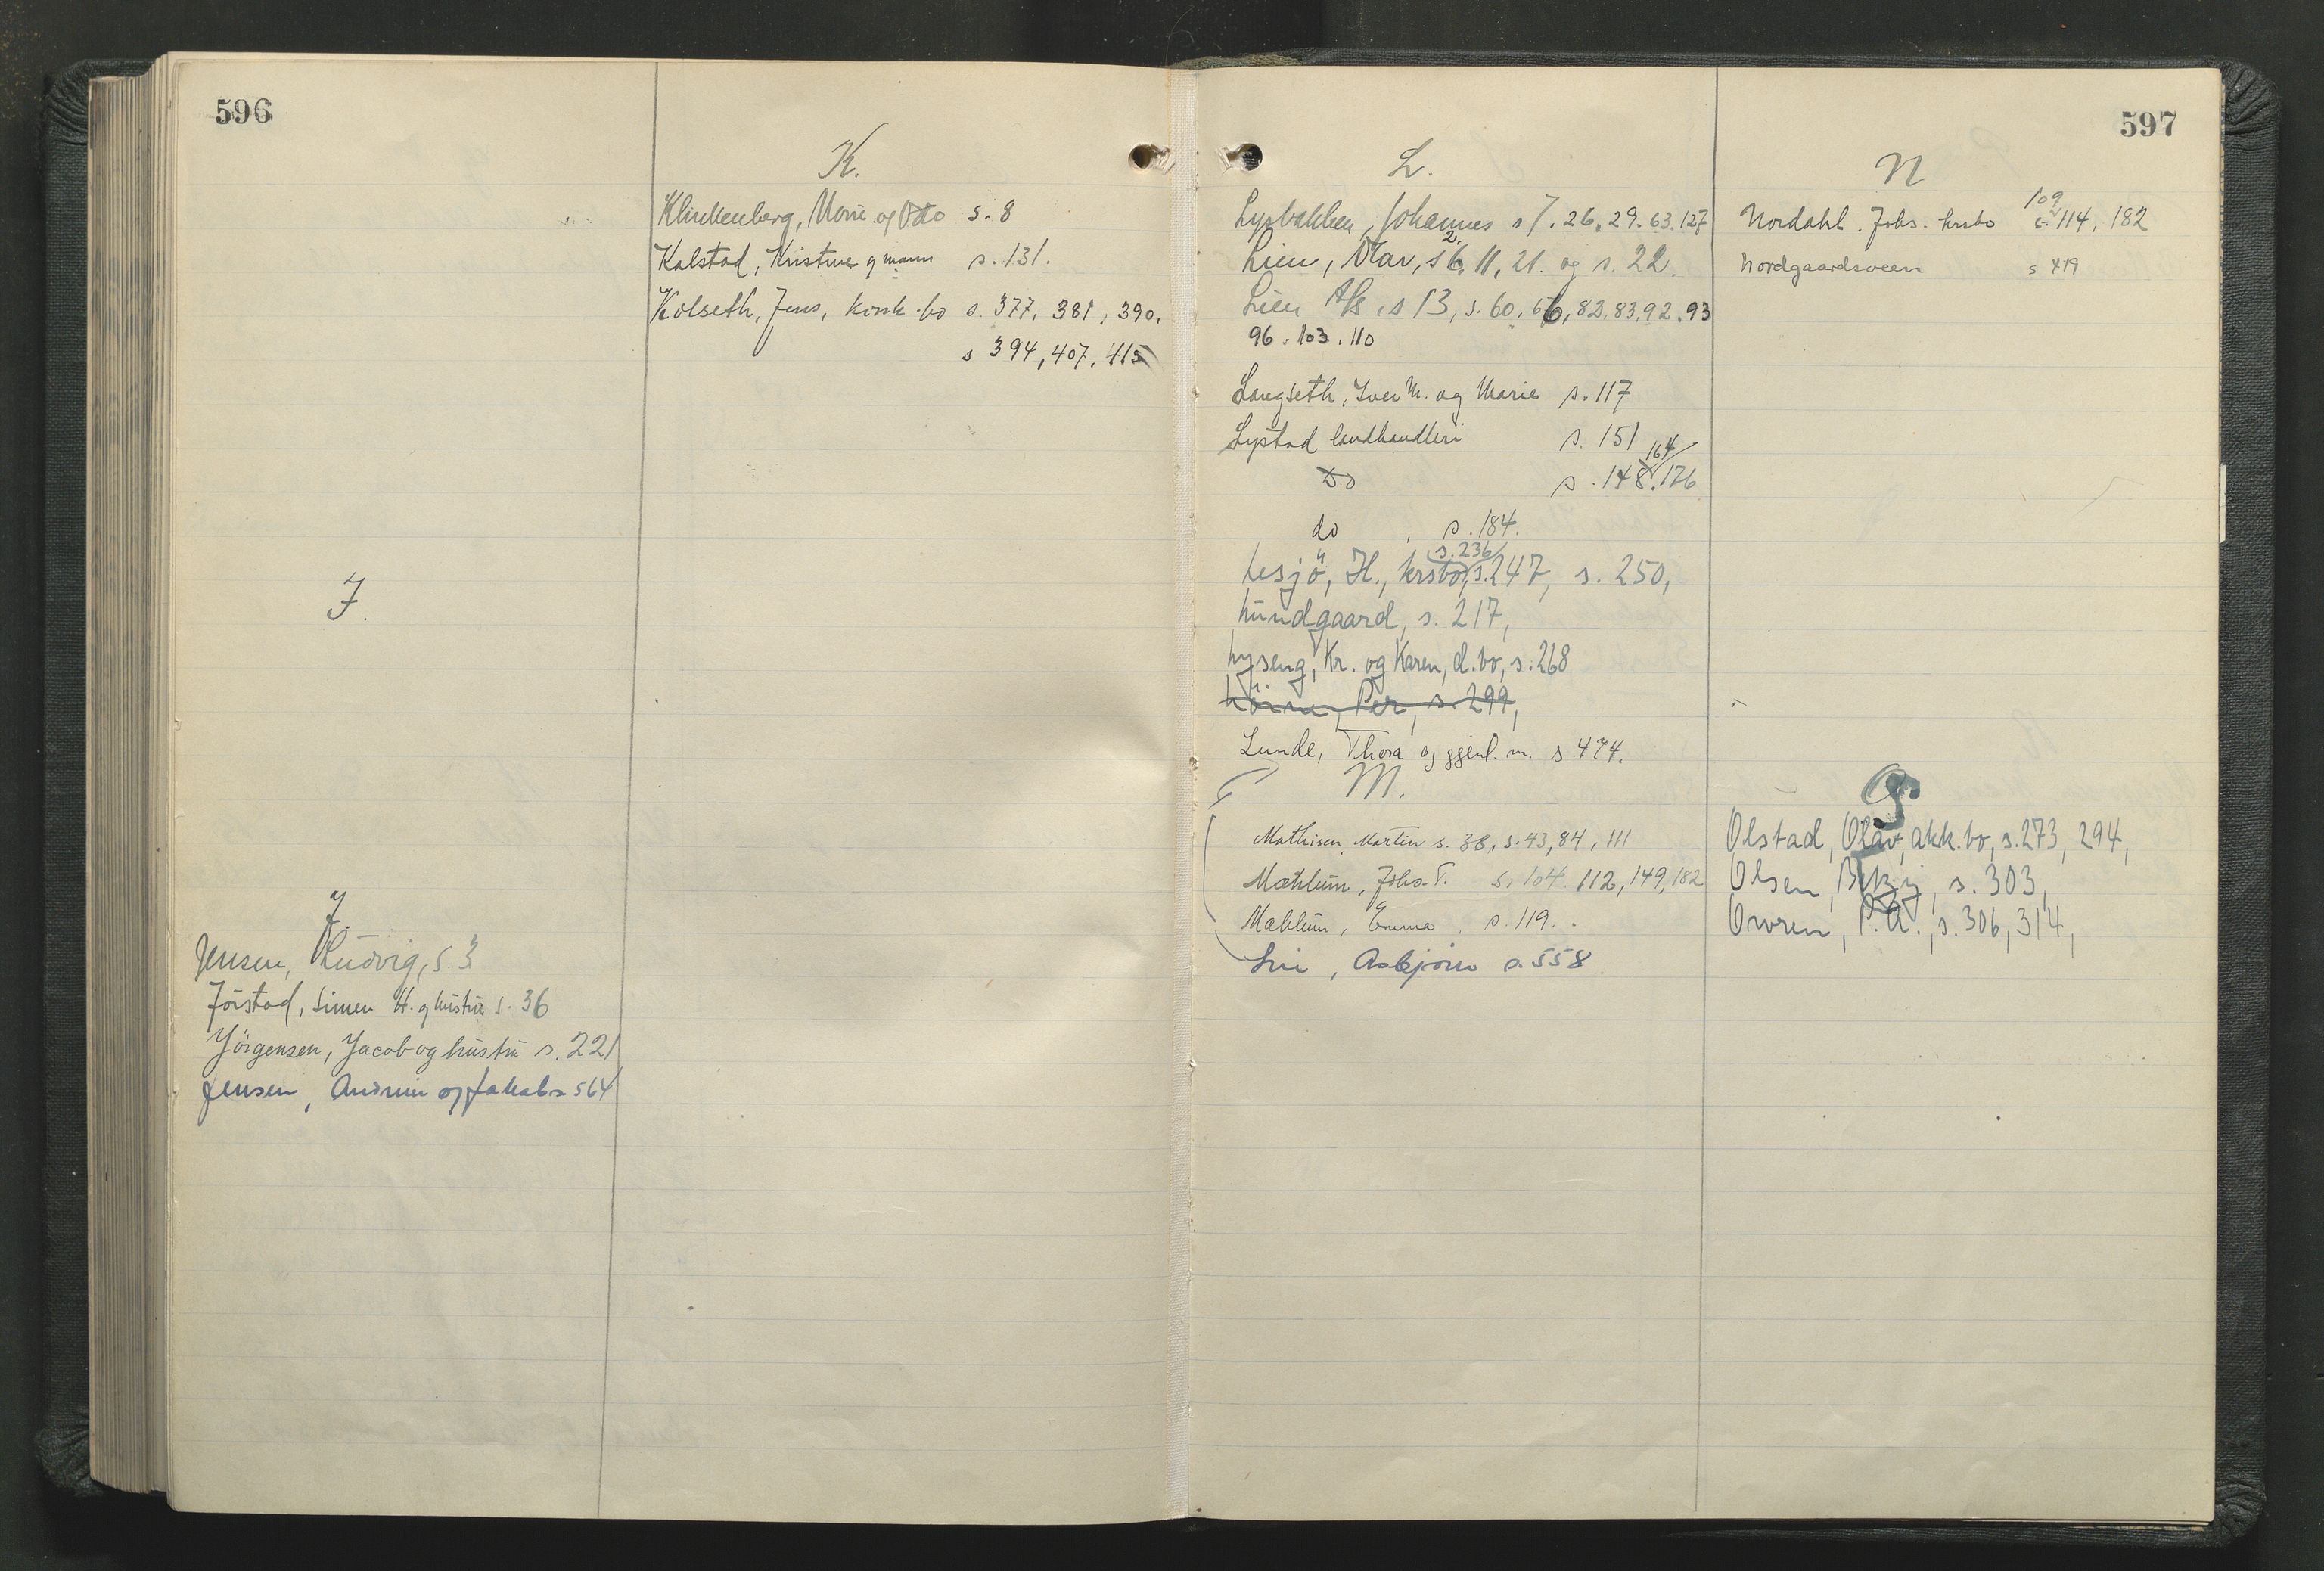 596
I.
J.
Jensen, Ludvig, s. 3
Jörstad, Simen H. og hustru s. 36
Jörgensen, Jacob og hustru s. 221
Jensen, og Jakob s 564
K.
Klinkenberg, Marie og Otto s. 8
Kalstad, Kristine og mann s. 131.
Kolseth, Jens, konk.bo s. 377, 381, 390,
s 394, 407, 415
597
L.
Lysbakken, Johannes s 7. 26. 29. 63. 127
Lien, Olav, s 2. 6, 11, 21. og s. 22.
Lien A/s, s 13, s. 60, 66, 82, 83, 92. 93
96. 103. 110
Langseth, Iver M. og Marie s. 117
Lystad landhandleri s. 151
164
Do s. 148. 176
do, s. 184.
s. 236
Lesjö, H., krsbo, s. 247, s. 250,
Lundgaard, s. 217,
Lyseng, Kr. og Karen, d.bo, s. 268
Per, s. 299,
Lunde, Thora og gjenl. m. s. 474.
M.
Mathisen, Martin s. 38, s. 43, 84, 111
Mæhlum, Johs. T. s. 104 112, 149, 182
Mæhlum, Emma, s. 119.
Lie, Asbjörn s. 558
N
109
Nordahl. Johs. krsbo s. 114, 182
Nordgaardsveen s 419
O
Olstad, Olav, akk.bo, s. 273, 294,
Olsen, s. 303,
Owren, P.A., s. 306, 314,